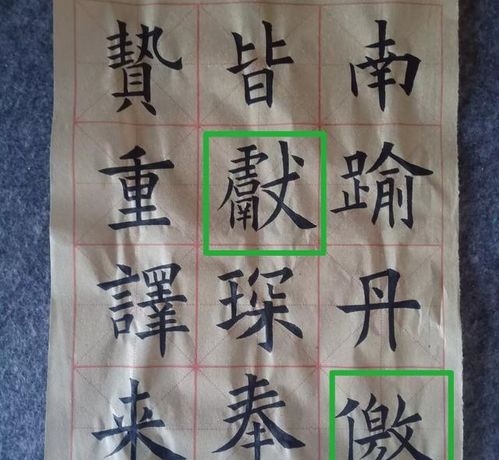 南踰丹儌
皆獻琛奉
贄重譯来